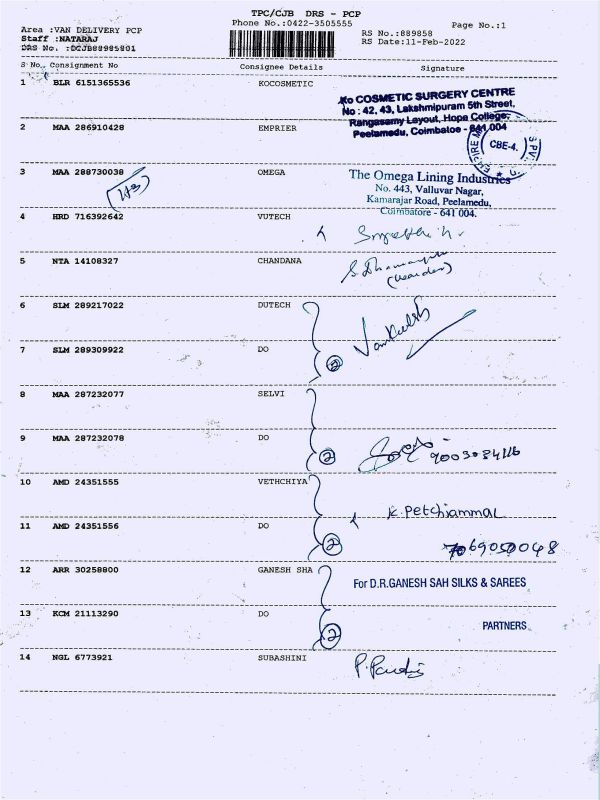 TPC/CJB DRS - PCP
Phone No.:0422-3505555
Page No.:1
Area :VAN DELIVERY PCP
Staff :NATARAJ
DRS No. :DCJB88985801
RS No.:889858
RS Date:11-Feb-2022
S No. Consignment No Consignee Details Signature
1 BLR 6151365536 KOCOSMETIC
Ko COSMETIC SURGERY CENTRE
No : 42, 43, Lakshmipuram 5th Street,
Rangasamy Layout, Hope College,
Peelamedu, Coimbatoe - 641 004
2 MAA 286910428 EMPRIER
CBE-4.
3 MAA 288730038 OMEGA
The Omega Lining Industries
No. 443, Valluvar Nagar,
Kamarajar Road, Peelamedu,
Coimbatore - 641 004.
4 HRD 716392642 VUTECH
5 NTA 14108327 CHANDANA
(Warden)
6 SLM 289217022 DUTECH
7 SLM 289309922 DO
2
8 MAA 287232077 SELVI
9 MAA 287232078 DO
2
10 AMD 24351555 VETHCHIYA
K. Petchiammal
11 AMD 24351556 DO
2
12 ARR 30258800 GANESH SHA
For D.R.GANESH SAH SILKS & SAREES
13 KCM 21113290 DO
2
PARTNERS
14 NGL 6773921 SUBASHINI